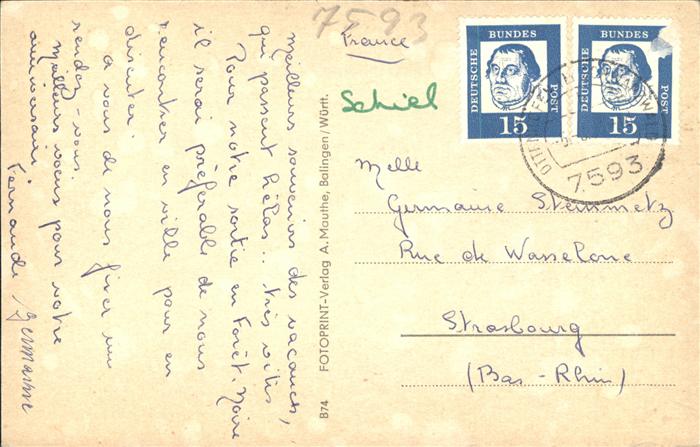 7593
France
Schiel
DEUTSCHE BUNDES POST
15
DEUTSCHE BUNDES POST
15
7593
Meilleurs souvenirs des vacances,
qui passent hélas.. très vite.
Pour notre sortie en Forêt-Noire
il serai préférable de nous
rencontrer en ville pour en
discuter.
a vous de nous fixer un
rendez-vous.
Meilleurs voeux pour votre
anniversaire
Fernande Germaine
B74 FOTOPRINT-Verlag A. Mauthe, Balingen/Württ.
Melle
Germaine Steinmetz
Rue de Wasselonne
Strasbourg
(Bas-Rhin)